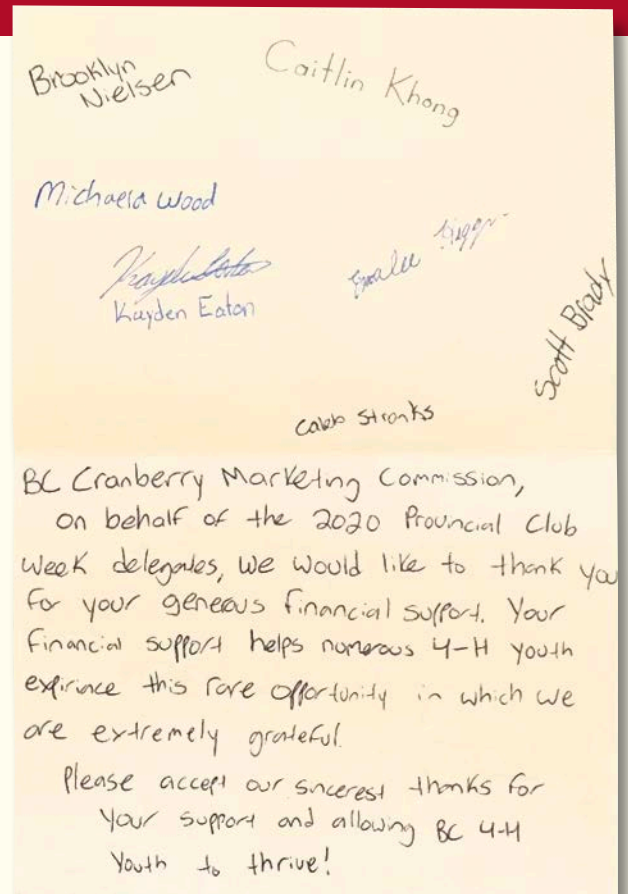 Brooklyn
Nielsen
Caitlin Khong
Michaela Wood
Kayden Eaton
Scott Brady
Caleb Stronks
BC Cranberry Marketing Commission,
on behalf of the 2020 Provincial Club
Week delegates, we would like to thank you
for your generous financial support. Your
financial support helps numerous 4-H youth
expirince this rare opportunity in which we
are extremely grateful.
Please accept our sincerest thanks for
your support and allowing BC 4-H
Youth to thrive!